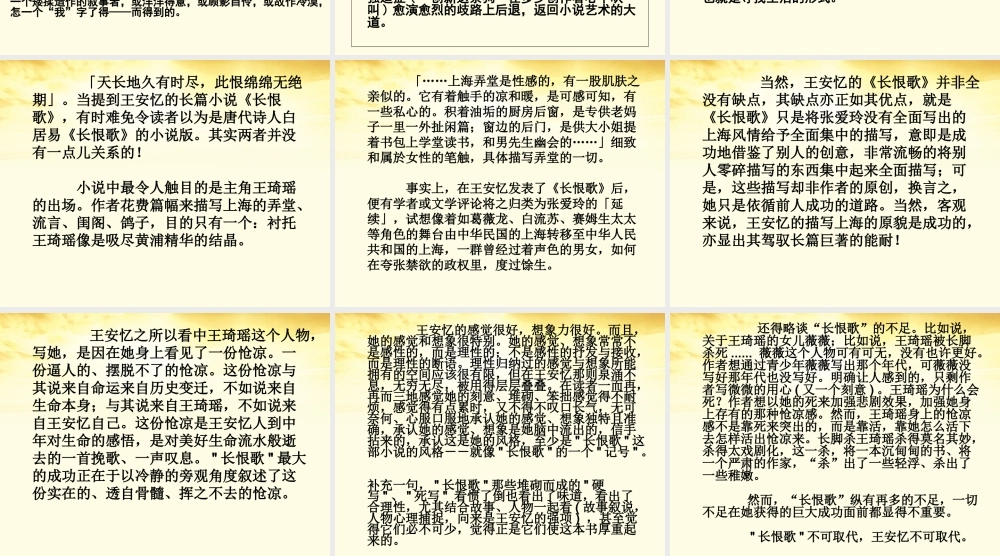 怎一个“我”字了得——而得到的。
叫）愈演愈烈的歧路上后退，返回小说艺术的大
道。
「天长地久有时尽，此恨绵绵无绝
期」。当提到王安忆的长篇小说《长恨
歌》，有时难免令读者以为是唐代诗人白
居易《长恨歌》的小说版。其实两者并没
有一点儿关系的！
小说中最令人触目的是主角王琦瑶
的出场。作者花费篇幅来描写上海的弄堂、
流言、闺阁、鸽子，目的只有一个：衬托
王琦瑶像是吸尽黄浦精华的结晶。
「……上海弄堂是性感的，有一股肌肤之
亲似的。它有着触手的凉和暖，是可感可知，有
一些私心的。积着油垢的厨房后窗，是专供老妈
子一里一外扯闲篇；窗边的后门，是供大小姐提
着书包上学堂读书，和男先生幽会的……」细致
和属於女性的笔触，具体描写弄堂的一切。
事实上，在王安忆发表了《长恨歌》后，
便有学者或文学评论将之归类为张爱玲的「延
续」，试想像着如葛薇龙、白流苏、赛姆生太太
等角色的舞台由中华民国的上海转移至中华人民
共和国的上海，一群曾经过着声色的男女，如何
在夸张禁欲的政权里，度过馀生。
当然，王安忆的《长恨歌》并非全
没有缺点，其缺点亦正如其优点，就是
《长恨歌》只是将张爱玲没有全面写出的
上海风情给予全面集中的描写，意即是成
功地借鉴了别人的创意，非常流畅的将别
人零碎描写的东西集中起来全面描写；可
是，这些描写却非作者的原创，换言之，
她只是依循前人成功的道路。当然，客观
来说，王安忆的描写上海的原貌是成功的，
亦显出其驾驭长篇巨著的能耐！
王安忆之所以看中王琦瑶这个人物，
写她，是因在她身上看见了一份怆凉。一
份逼人的、摆脱不了的怆凉。这份怆凉与
其说来自命运来自历史变迁，不如说来自
生命本身；与其说来自王琦瑶，不如说来
自王安忆自己。这份怆凉是王安忆人到中
年对生命的感悟，是对美好生命流水般逝
去的一首挽歌、一声叹息。"长恨歌"最大
的成功正在于以冷静的旁观角度叙述了这
份实在的、透自骨髓、挥之不去的怆凉。
王安忆的感觉很好，想象力很好。而且，
她的感觉和想象很特别。她的感觉、想象常常不
是感性的，而是理性的；不是感性的抒发与接收，
而是理性的断语。理性归纳过的感觉与想象所能
拥有的空间应该很有限，但在王安忆那则泉涌不
息，无穷无尽，被用得层层叠叠。在读者一而再，
再而三地感觉她的刻意、堆砌、笨拙感觉得不耐
烦，感觉得有点累时，又不得不叹口长气，无可
奈何、心服口服地承认她的感觉、想象独特且准
确，承认她的感觉、想象是她脑中流出的，信手
拈来的，承认这是她的风格，至少是"长恨歌"这
部小说的风格－－就像"长恨歌"的一个"记号"。
补充一句，"长恨歌"那些堆砌而成的"硬
写"、"死写"看惯了倒也看出了味道，看出了
合理性，尤其结合故事、人物一起看(故事叙说，
人物心理捕捉，向来是王安忆的强项)，甚至觉
得它们必不可少，觉得正是它们使这本书厚重起
来的。
还得略谈“长恨歌”的不足。比如说，
关于王琦瑶的女儿薇薇；比如说，王琦瑶被长脚
杀死……薇薇这个人物可有可无，没有也许更好。
作者想通过青少年薇薇写出那个年代，可薇薇没
写好那年代也没写好。明确让人感到的，只剩作
者写微微的用心(又一个刻意)。王琦瑶为什么会
死？作者想以她的死来加强悲剧效果，加强她身
上存有的那种怆凉感。然而，王琦瑶身上的怆凉
感不是靠死来突出的，而是靠活，靠她怎么活下
去怎样活出怆凉来。长脚杀王琦瑶杀得莫名其妙，
杀得太戏剧化，这一杀，将一本沉甸甸的书、将
一个严肃的作家，“杀”出了一些轻浮、杀出了
一些稚嫩。
然而，“长恨歌”纵有再多的不足，一切
不足在她获得的巨大成功面前都显得不重要。
"长恨歌"不可取代，王安忆不可取代。